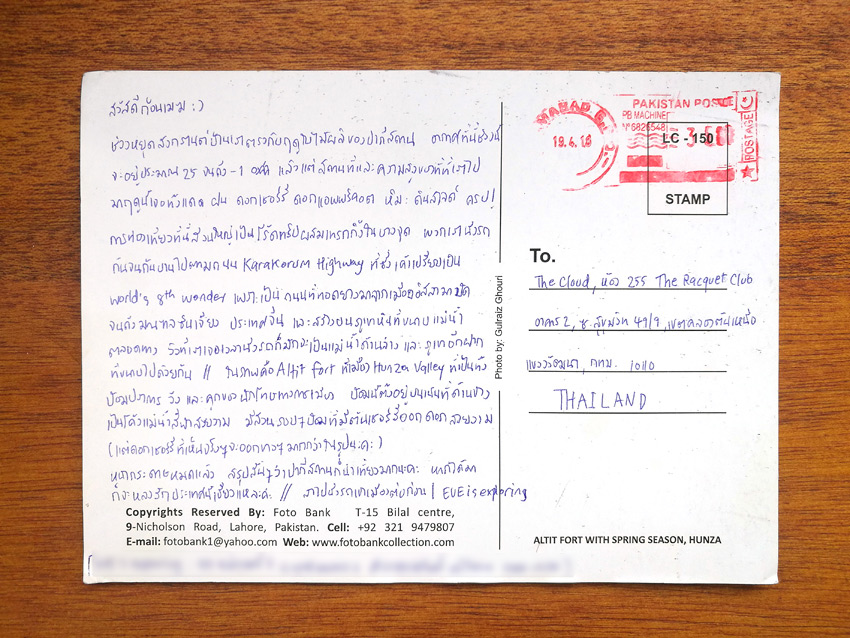 สวัสดีก้อนเมฆ :)
ช่วงหยุดสงกรานต์บ้านเราตรงกับฤดูใบไม้ผลิของปากีสถาน อากาศที่นี่ช่วงนี้
จะอยู่ประมาณ 25 จนถึง -1 องศา แล้วแต่สถานที่และความสูงของที่ที่เราไป
มาฤดูนี้เจอทั้งแดด ฝน ดอกเชอร์รี่ ดอกแอพพริคอต หิมะ ดินสไลด์ ครบ!
การท่องเที่ยวที่นี่ส่วนใหญ่เป็นโร้ดทริปผสมเทรกกิ้งในบางจุด พวกเรานั่งรถ
กันจนก้นบานไปตามถนน Karakorum Highway ที่ซึ่งเค้าเปรียบเป็น
world's 8th wonder เพราะเป็นถนนที่ทอดยาวมาจากเมืองอิสลามาบัด
จนถึงมณฑลซินเจียง ประเทศจีน และสร้างบนภูเขาหินที่ขนาบแม่น้ำ
ตลอดทาง วิวที่เราเจอเวลานั่งรถก็มักจะเป็นแม่น้ำด้านล่าง และภูเขาอีกฝาก
ที่ขนาบไปด้วยกัน // ในภาพคือ Altit Fort ที่เมือง Hunza Valley ที่เป็นทั้ง
ป้อมปราการ วัง และคุกของนักโทษทางการเมือง ป้อมนี้ตั้งอยู่บนเนินที่ด้านข้าง
เป็นโค้งแม่น้ำสีฟ้าสวยงาม มีสวนรอบๆ ป้อมที่มีต้นเชอร์รี่ออกดอกสวยงาม
(แต่ดอกเชอร์รี่ที่เห็นจริงๆ จะออกขาวๆ มากกว่าในรูปนะคะ)
หน้ากระดาษหมดแล้ว สรุปสั้นๆ ว่าปากีสถานก็น่าเที่ยวมากนะคะ หากได้มา
ก็จะหลงรักประเทศนี้เชียวแหละค่ะ // เราไปนั่งรถเข้าเมืองต่อก่อน | EVE is exploring
Copyrights Reserved By: Foto Bank T-15 Bilal centre,
9-Nicholson Road, Lahore, Pakistan. Cell: +92 321 9479807
E-mail: fotobank1@yahoo.com Web: www.fotobankcollection.com
Photo by: Gulraiz Ghouri
PAKISTAN POST
PB MACHINE
N° 6826548
POSTAGE
19.4.18
LC - 150
STAMP
To.
The Cloud, ห้อง 255 The Racquet Club
อาคาร 2, ซ.สุขุมวิท 49/9, เขตคลองตันเหนือ
แขวงวัฒนา, กทม. 10110
THAILAND
ALTIT FORT WITH SPRING SEASON, HUNZA